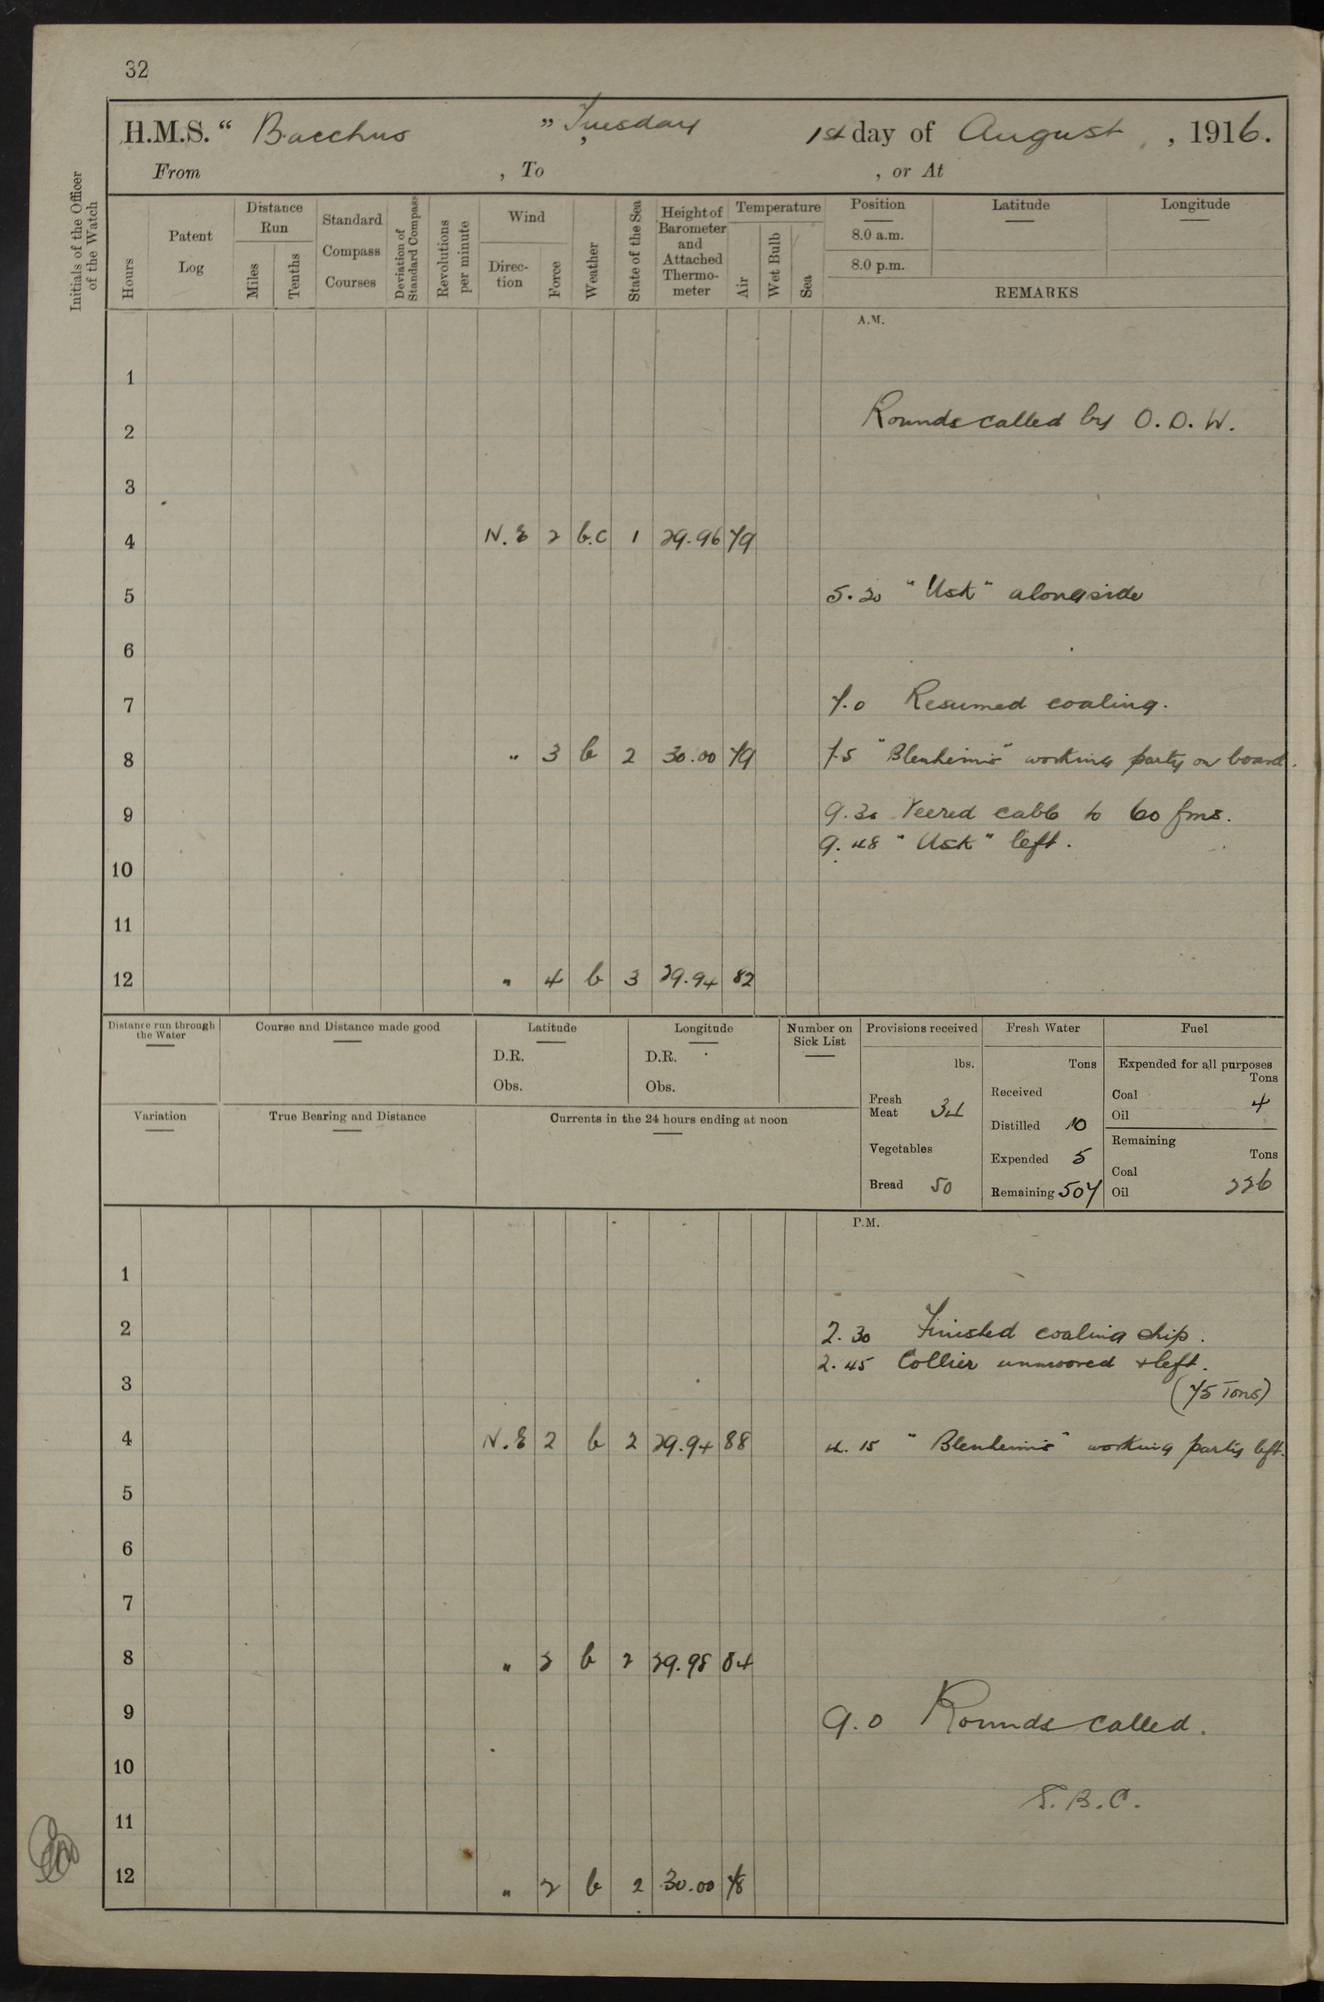 32
H.M.S. " Bacchus " Tuesday, 1st day of August, 1916.
From , To , or At
Initials of the Officer of the Watch
Hours
Patent Log
Distance Run
Miles
Tenths
Standard Compass Courses
Deviation of Standard Compass
Revolutions per minute
Wind
Direction
Force
Weather
State of the Sea
Height of Barometer and Attached Thermo-meter
Temperature
Air
Wet Bulb
Sea
Position
8.0 a.m.
8.0 p.m.
Latitude
Longitude
REMARKS
A.M.
1
Rounds called by O. D. W.
2
3
4 N.E 2 b.c 1 29.96 79
5 5.30 "Usk" alongside
6
7 7.0 Resumed coaling.
8 " 3 b 2 30.00 79 7.5 "Blenheim's" working party on board.
9 9.30 Veered cable to 60 fms.
9.48 "Usk" left.
10
11
12 " 4 b 3 29.94 82
Distance run through the Water
Course and Distance made good
Latitude
D.R.
Obs.
Longitude
D.R.
Obs.
Number on Sick List
Provisions received
lbs.
Fresh Meat 34
Vegetables
Bread 50
Fresh Water
Tons
Received
Distilled 10
Expended 5
Remaining 507
Fuel
Expended for all purposes
Tons
Coal 4
Oil
Remaining
Tons
Coal
Oil 226
Variation
True Bearing and Distance
Currents in the 24 hours ending at noon
P.M.
1
2 2.30 Finished coaling ship.
2.45 Collier unmoored & left.
3 (75 Tons)
4 N.E 2 b 2 29.94 88 4.15 "Blenheim's" working party left.
5
6
7
8 " 2 b 2 29.98 84
9 9.0 Rounds called.
10
11
12 " 2 b 2 30.00 78